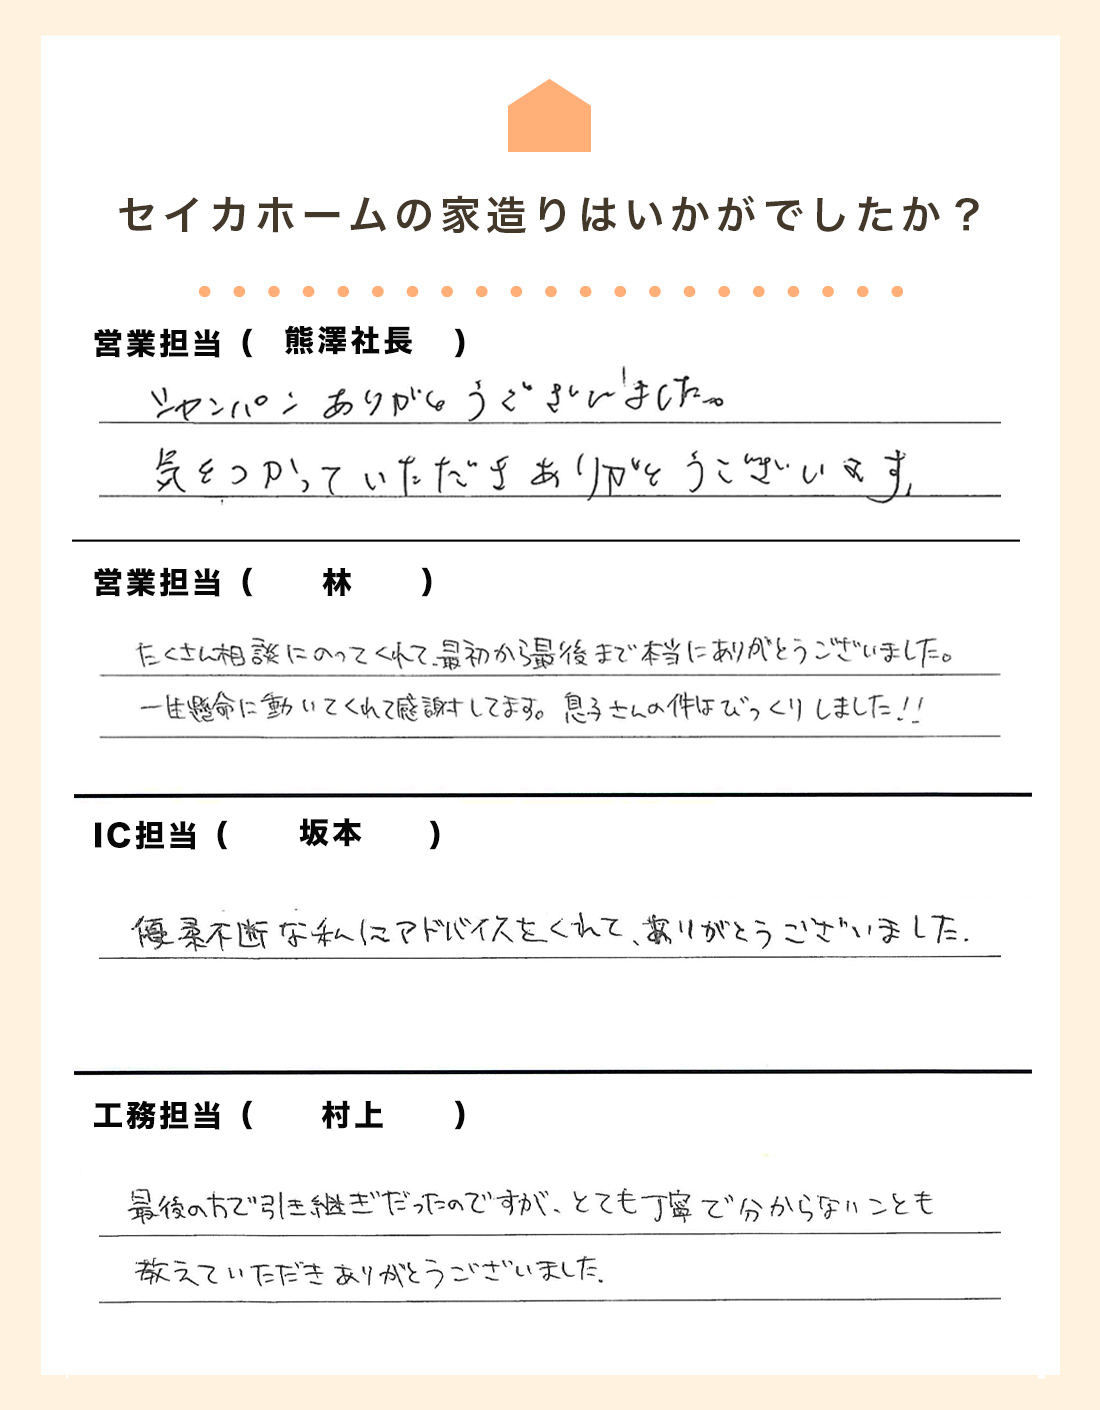 セイカホームの家造りはいかがでしたか？
営業担当（ 熊澤社長 ）
シャンパンありがとうございました。
気をつかっていただきありがとうございます。
営業担当（ 林 ）
たくさん相談にのってくれて、最初から最後まで本当にありがとうございました。
一生懸命に動いてくれて感謝してます。息子さんの件はびっくりしました!!
IC担当（ 坂本 ）
優柔不断な私にアドバイスをくれて、ありがとうございました.
工務担当（ 村上 ）
最後の方で引き継ぎだったのですが、とても丁寧で分からないことも
教えていただきありがとうございました.